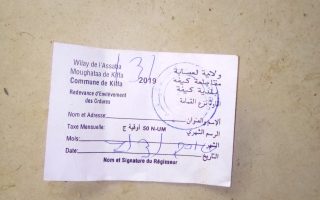 Wilay de l'Assaba
Moughataa de Kiffa
Commune de Kiffa
Redevance d'Enlèvement
des Ordures
2019
ولاية العصابة
مقاطعة كيفه
بلدية كيفه
إتاوة نزع القمامة
Nom et Adresse:
الاسم والعنوان
Taxe Mensuelle: 50 N-UM أوقية ج الرسم الشهري
Mois: الشهر
Date: التاريخ
Nom et Signature du Régisseur